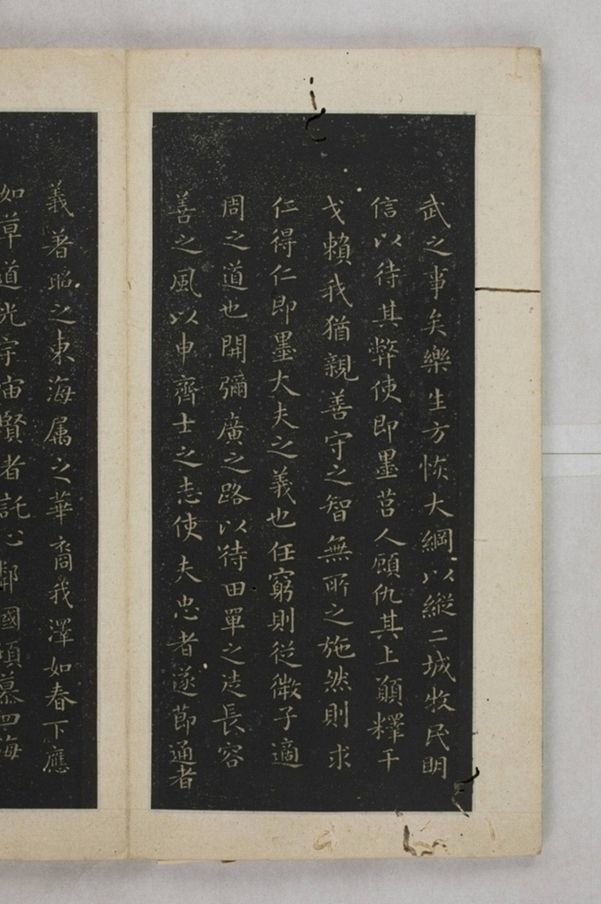 武之事矣樂生方恢大綱以縱二城牧民明
信以待其弊使即墨莒人顧仇其上願釋干
戈賴我猶親善守之智無所之施然則求
仁得仁即墨大夫之義也任窮則從微子適
周之道也開彌廣之路以待田單之徒長容
善之風以申齊士之志使夫忠者遂節通者
義著昭之東海屬之華裔我澤如春下應
如草道光宇宙賢者託心鄰國傾慕四海